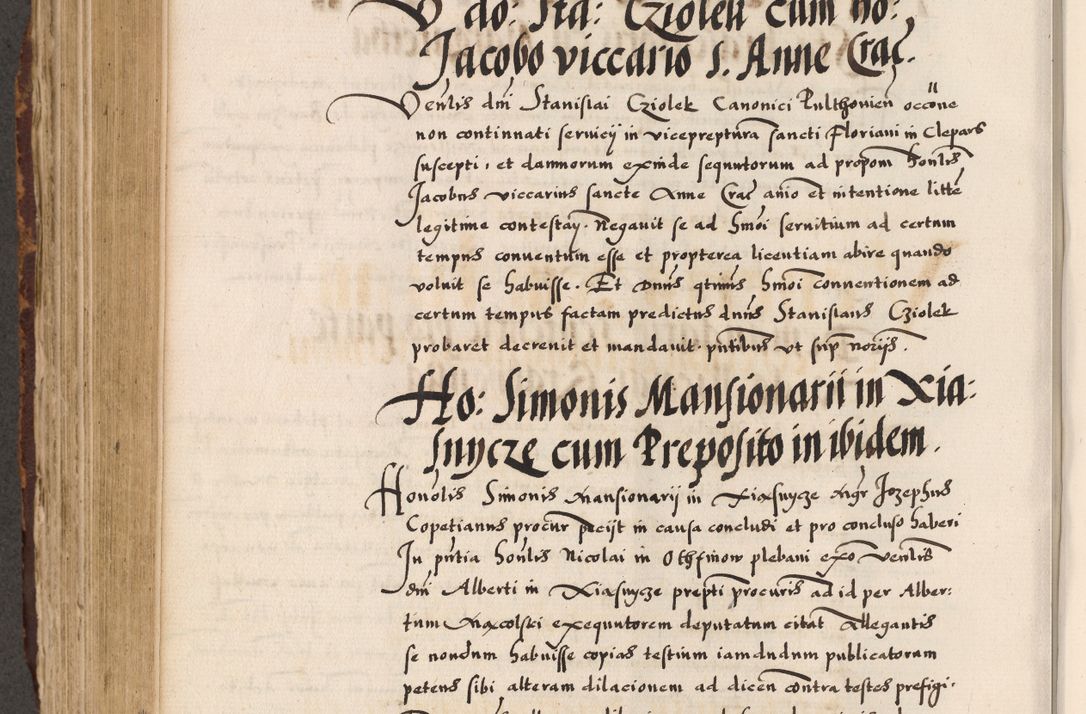 V do: Sta: Cziolek cum ho:
Jacobo viccario S. Anne Crac.
Venlis dni Stanislai Cziolek Canonici Pulthovien occone
non continuati servicij in vicepreptura sancti Floriani in Clepars
suscepti, et damnorum exinde sequutorum ad propom honlis
Jacobus viccarius sancte Anne Crac anio et intentione litte
legitime contestay. Negavit se ad hmoi servitium ad certum
tempus conventum esse et propterea licentiam abire quando
voluit se habuisse. Et Dnus qtinus hmoi conventionem ad
certum tempus factam predictus dnus Stanislaus Cziolek
probaret decrevit et mandavit. pntibus ut sup norijs.
Ho: Simonis Mansionarii in Xia-
snycze cum Preposito in ibidem.
Honolis Simonis mansionarij in Xiasnycze Mgr Jozephus
Copetianus procur pecijt in causa concludi et pro concluso haberi
In pntia honlis Nicolai in Othfinow plebani exo venlis
dni Alberti in Xiasnycze prepti procuris ad id per Alber:
tum Maxcolski exequutorem deputatum citat Allegantis
se nondum habuisse copias testium iamdudum publicatorum
petens sibi alteram dilacionem ad dicen contra testes prefigi-